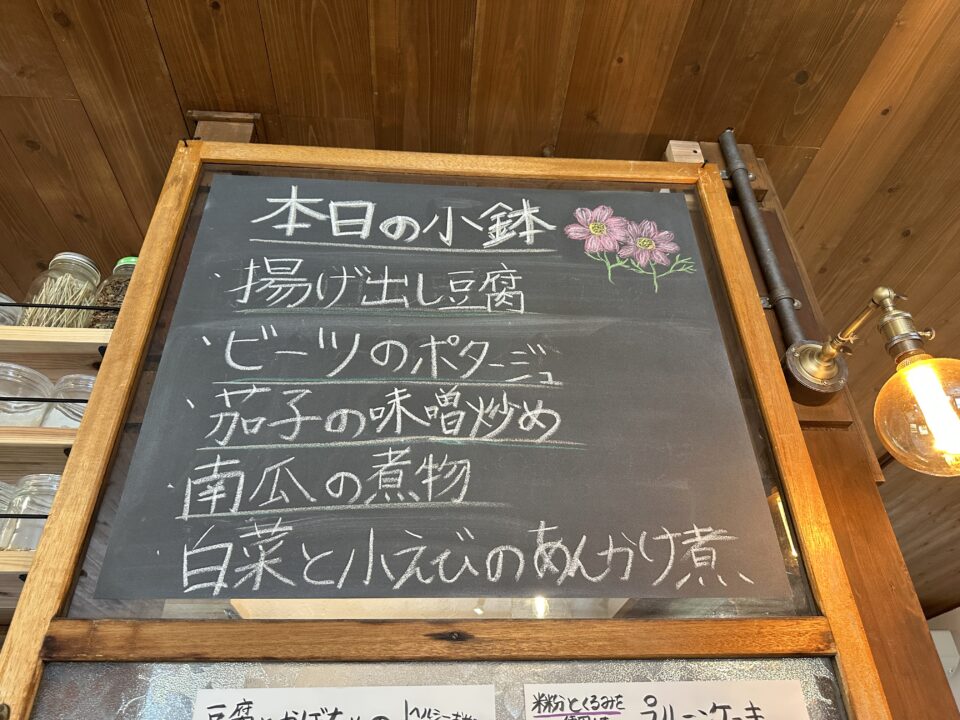 本日の小鉢
・揚げ出し豆腐
・ビーツのポタージュ
・茄子の味噌炒め
・南瓜の煮物
・白菜と小えびのあんかけ煮
豆腐とかぼちゃの
米粉とくるみを
プルーンケーキ